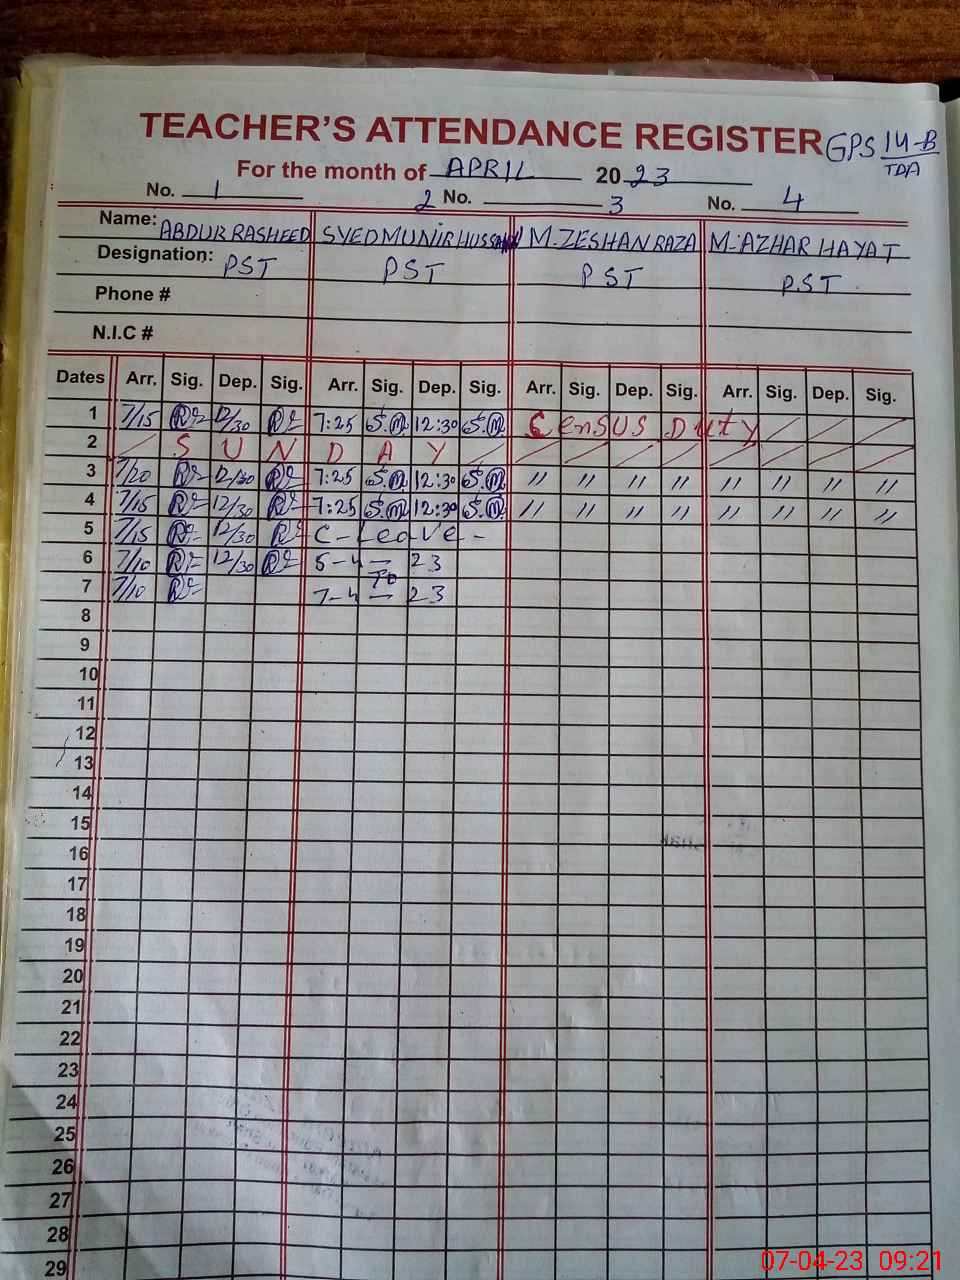 TEACHER'S ATTENDANCE REGISTER GPS 14-B
TDA
For the month of APRIL 2023
No. 1 2 No. 3 No. 4
Name: ABDUR RASHEED SYED MUNIR HUSSAIN M. ZESHAN RAZA M. AZHAR HAYAT
Designation: PST PST PST P.ST.
Phone #
N.I.C #
Dates Arr. Sig. Dep. Sig. Arr. Sig. Dep. Sig. Arr. Sig. Dep. Sig. Arr. Sig. Dep. Sig.
1 7/15 12/30 7:25 S.M 12:30 S.M Census Duty
2 SUNDAY
3 7/20 12/30 7:25 S.M 12:30 S.M " " " " " " " "
4 7/15 12/30 7:25 S.M 12:30 S.M " " " " " " " "
5 7/15 12/30 C-Leave-
6 7/10 12/30 5-4-23
To
7 7/10 7-4-23
8
9
10
11
12
13
14
15
16
17
18
19
20
21
22
23
24
25
26
27
28
29
07-04-23 09:21